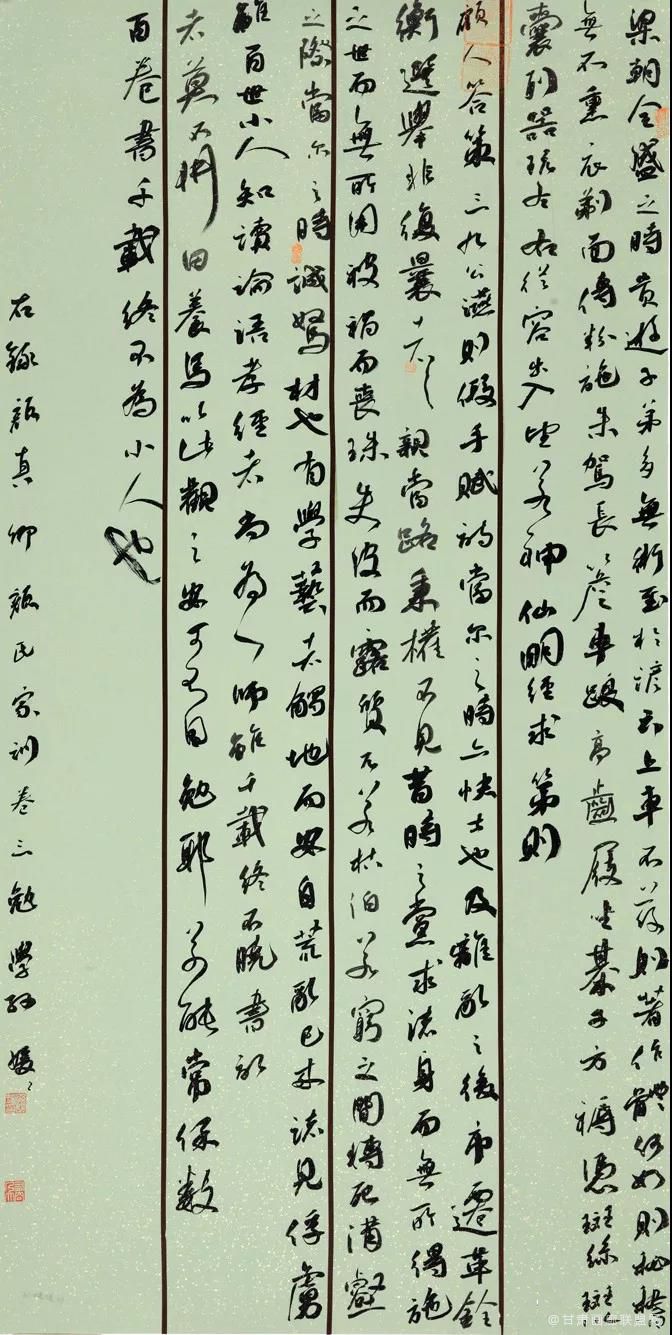 梁朝全盛之時貴遊子弟多無術至於諺云上車不落則著作體何如則秘書
無不熏衣剃面傅粉施朱駕長簷車躡高齒屐坐棊子方褥憑斑絲斑
囊列器玩左右從容出入望若神仙明經求第則
顧人答策三九公讌則假手賦詩當尔之時亦快士也及離亂之後市遷革銓
衡選舉非復曩者之親當路秉權不見昔時之黨求諸身而無所得施
之世而無所用被褐而喪珠失皮而露質兀若枯泊若窮之間轉死溝壑
之際當尔之時誠駑材也有學藝者觸地而安自荒亂已来諸見俘虜
雖百世小人知讀論語孝經者尚為人師雖千載終不曉書記
者莫不耕田養馬以此觀之安可不自勉耶若能常保數
百卷書千載終不為小人也
右錄顏真卿顏氏家訓卷三勉學孫媛々